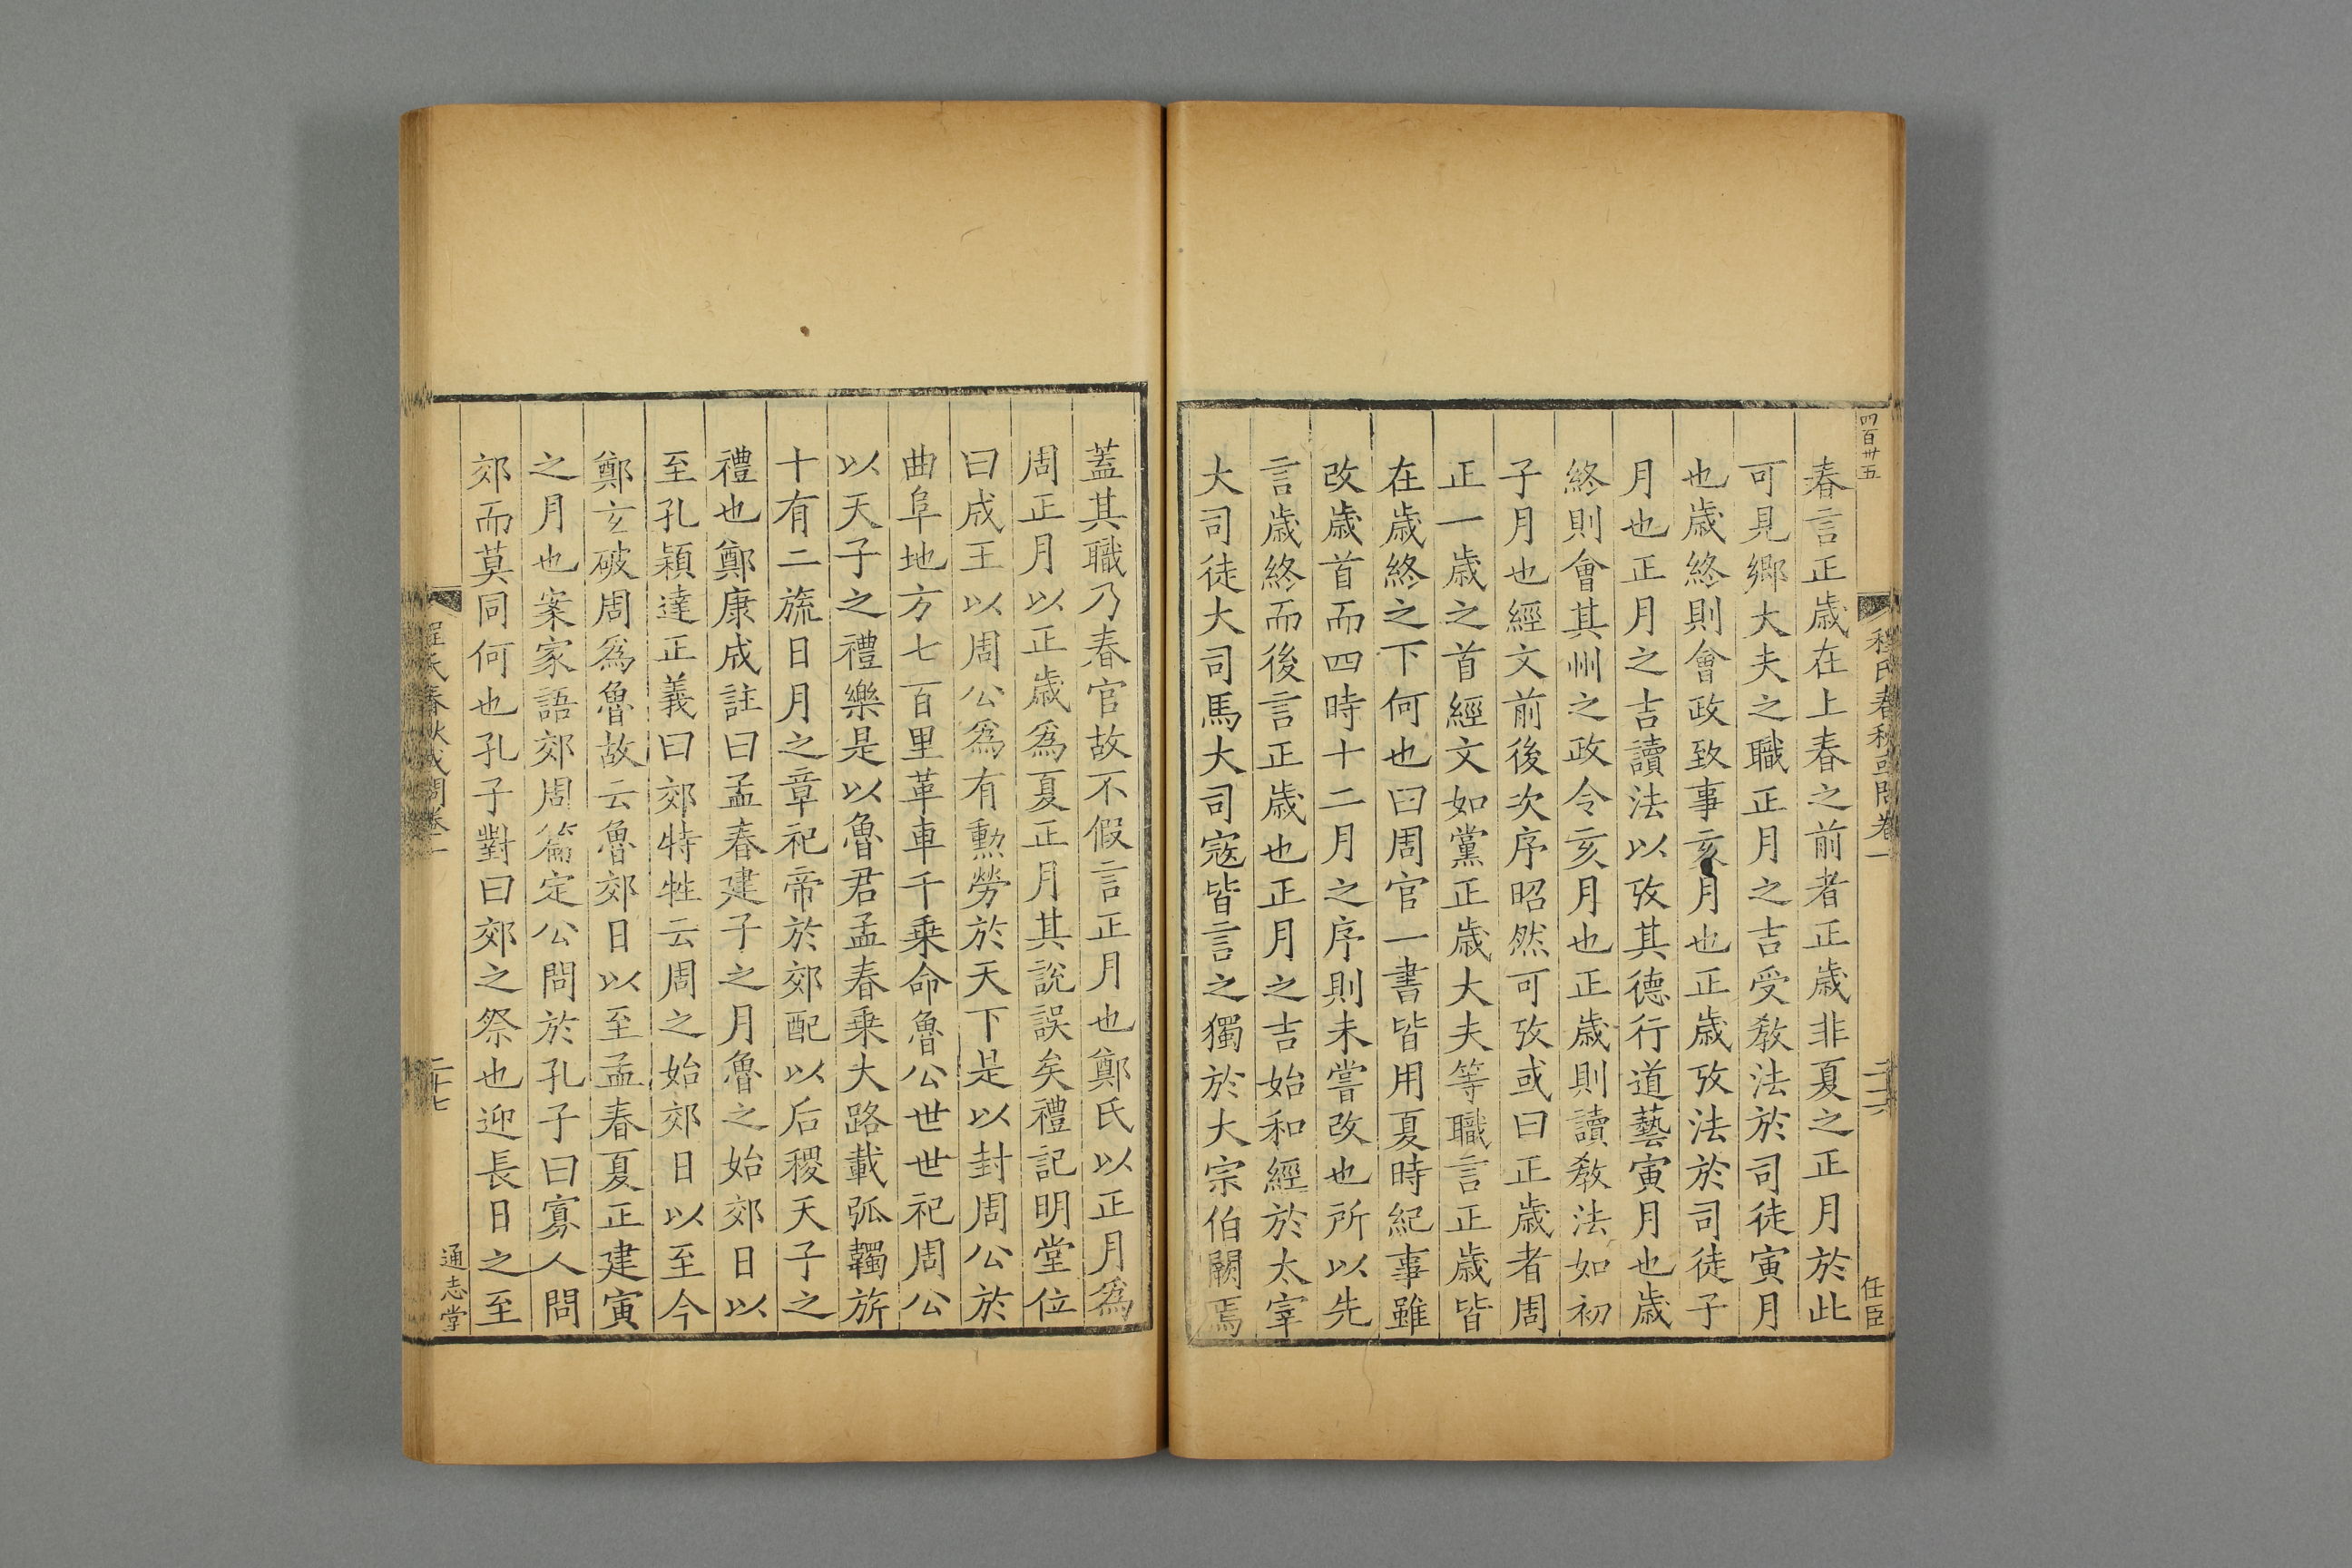 四百卅五
程氏春秋或問卷一
二十六
任臣
春言正歳在上春之前者正歳非夏之正月於此
可見鄉大夫之職正月之吉受教法於司徒寅月
也歳終則會政致事亥月也正歳攷法於司徒子
月也正月之吉讀法以攷其德行道藝寅月也歳
終則會其州之政令亥月也正歳則讀教法如初
子月也經文前後次序昭然可攷或曰正歳者周
正一歳之首經文如黨正歳大夫等職言正歳皆
在歳終之下何也曰周官一書皆用夏時紀事雖
改歳首而四時十二月之序則未嘗改也所以先
言歳終而後言正歳也正月之吉始和經於太宰
大司徒大司馬大司寇皆言之獨於大宗伯闕焉
蓋其職乃春官故不假言正月也鄭氏以正月爲
周正月以正歳爲夏正月其說誤矣禮記明堂位
曰成王以周公爲有勲勞於天下是以封周公於
曲阜地方七百里革車千乗命魯公世世祀周公
以天子之禮樂是以魯君孟春乗大路載弧韣旂
十有二旒日月之章祀帝於郊配以后稷天子之
禮也鄭康成註曰孟春建子之月魯之始郊日以
至孔穎達正義曰郊特牲云周之始郊日以至今
鄭玄破周爲魯故云魯郊日以至孟春夏正建寅
之月也案家語郊周篇定公問於孔子曰寡人問
郊而莫同何也孔子對曰郊之祭也迎長日之至
程氏春秋或問卷一
二十七
通志堂